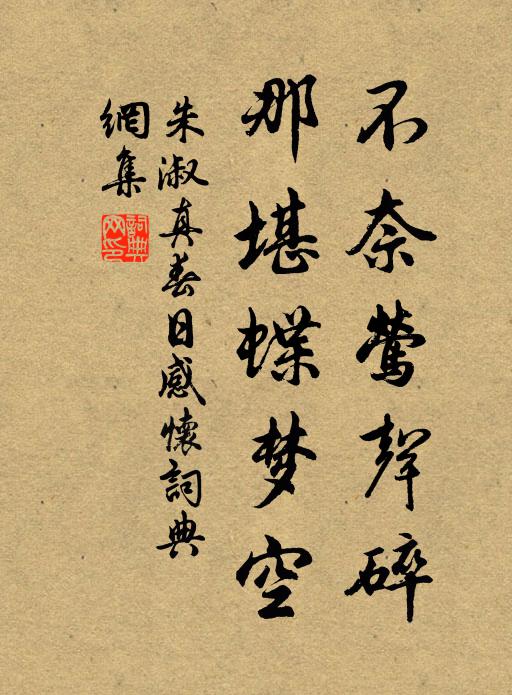 不奈莺聲碎
那堪蝶梦空
朱淑真春日感懷詞典
網集
詞典网印